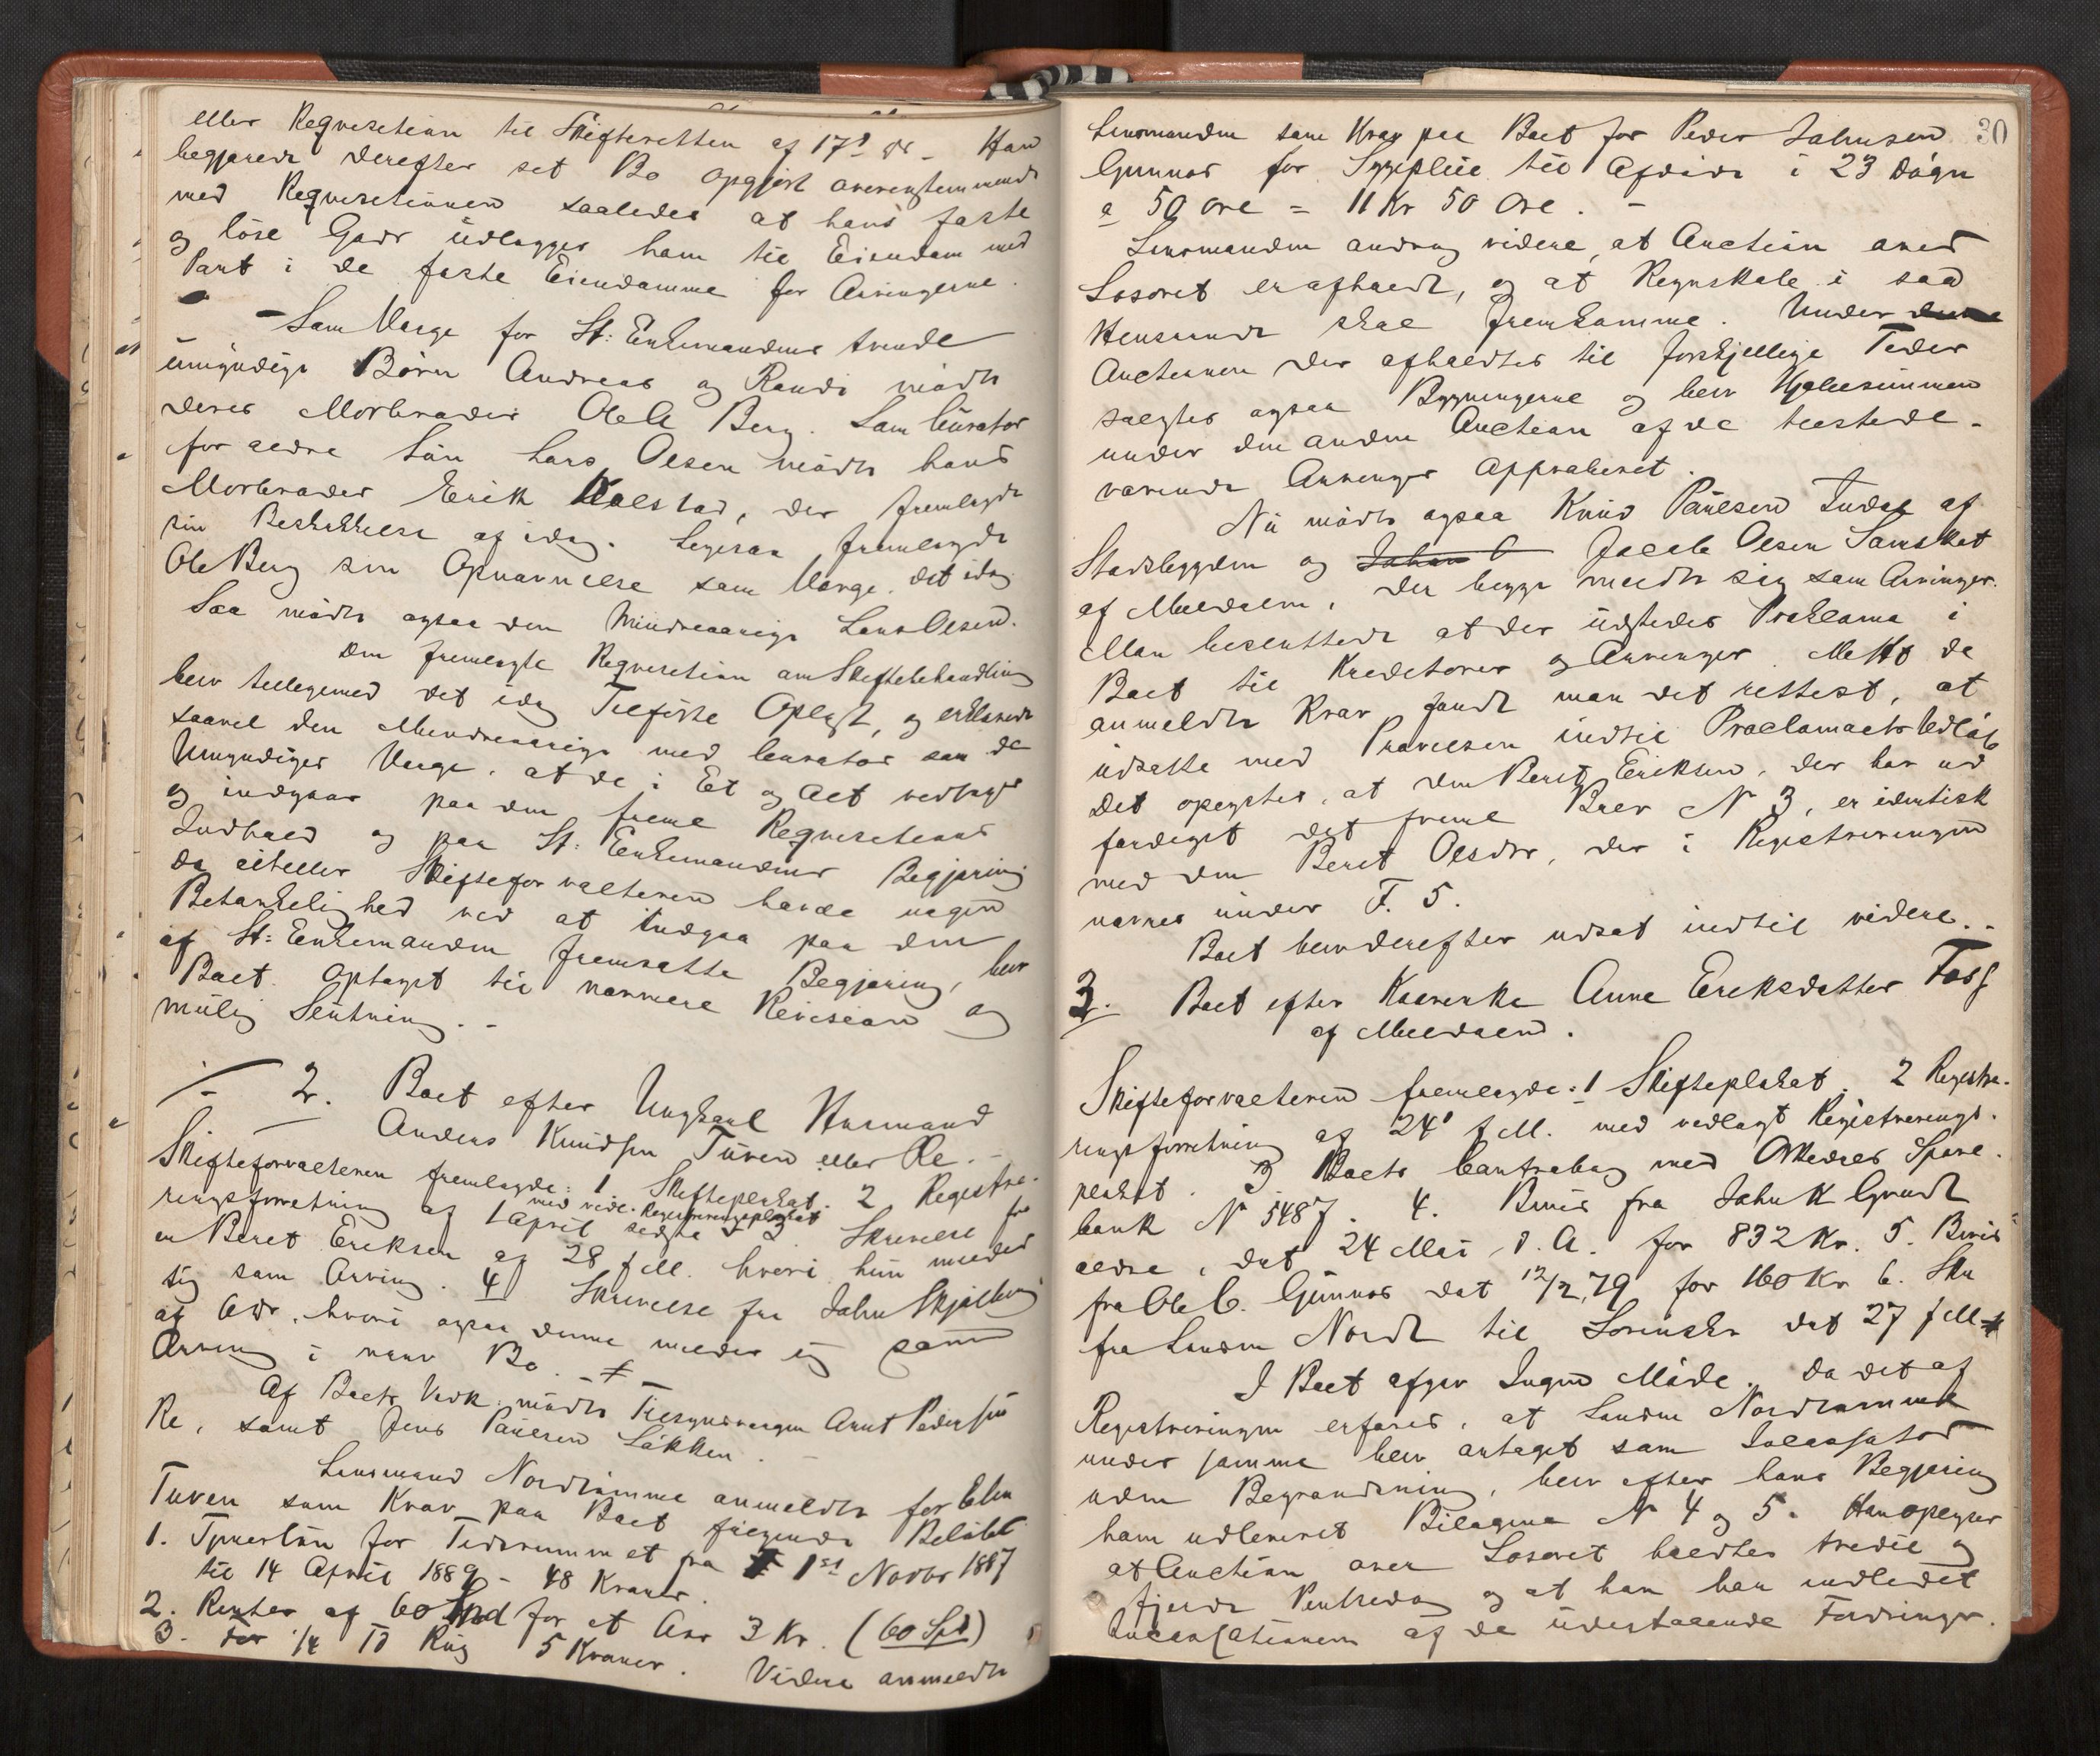 eller Reqvisition til Skifteretten af 17de ds _ Han
begjærede derefter set Bo opgjort overenstemmende
med Reqvisitionen saaledes at hans faste
og löse Gods üdlægges ham til Eiendom med
Pant i de faste Eiendomme for Arvingerne.
- Som Værge for St: Enkemandens tvende
ümyndige Börn Andreas og Randi mödte
deres Morbroder Ole Berg. Som Cürator
for ældre Sön Lars Olsen mödte hans
Morbroder Erik Kalstad, der fremlagde
sin Beskikkelse af idag. Ligesaa fremlagde
Ole Berg sin Opnævnelse som Værge dat idag
Saa mödte ogsaa den Mindreaarige Lars Olsen.
Den fremlagte Reqvisition om Skiftebehandling
blev tilligemed det idag Tilförte Oplæst, og erklærede
saavel den Mindreaarige med Curator som de
Umyndiges Værge, at de i Et og Alt vedtage
og indgaar paa den fremlagte Reqvisitions
Indhold og paa St: Enkemandens Begjæring
da eiheller Skifteforvalteren havde nogen
Betænkelighed ved at indgaa paa den
af St: Enkemanden fremsatte Begjæring, blev
Boet optaget til nærmere Revision og
mülig Slütning. -
2. Boet efter Ungkarl Husmand
Anders Knudsen Tüven eller Re. -
Skifteforvalteren fremlagde: 1 Skifteplakat. 2 Registre-
ringsforretning af 1 April sidste
med vedl. Registreringsplakat
3 Skrivelse fra
en Beret Eriksen af 28 f M. hvori hun melder
sig som Arving. 4 Skrivelse fra John Skjölberg
af 6 ds. hvori ogsaa denne melder sig som
Arving i nærv Bo. ≠
Af Boets Vedk. mödte Tilsynsværgen Arnt Pedersen
Re, samt Jens Paülsen Løkken.
Lensmand Nordrömme anmeldte for
Tuven som Krav paa Boet fölgende Belöb
1. Tjenerlön for Tidsrummet fra 1st Novbr 1887
til 14 April 1889 - 48 Kroner.
2. Renter af 60 Spd for et Aar 3 Kr. (60 Spd)
3. for 14 Rug 5 Kroner. Videre anmeldte
30
Lensmanden som Krav paa Boet for Peder Johnsen
Gunnes for Sygepleie til Afdöde i 23 Dögn
a 50 Ore = 11 Kr 50 Ore. -
Lensmanden androg videre, at Auction over
Lösöret er afholdt, og at Regnskab i saa
Henseende skal fremkomme. Under denne
Auctionen der afholdtes til forskjellige Tider
solgtes ogsaa Bygningerne og blev Kjöbesummen
under den anden Auction af de tilstede-
værende Arvinger approberet.
Nü mödte ogsaa Knüd Paülsen Indal af
Stadsbygden og Johan O Jacob Olsen Samskot
af Meldalen, der begge meldte sig som Arvinger.
Man besluttede at der üdstedes Proklama i
Boet til Kreditorer og Arvinger. Mht de
anmeldte Krav fandt man det rettest, at
üdsætte med Prövelsen indtil Proclamaets Udlöb
det oplystes, at den Beret Eriksen, der har ud
færdiget det freml Brev N 3, er identisk
med den Beret Olsdr, der i Registreringen
nævnes ünder F. 5.
Boet blev derefter udsat indtil videre. -
3. Boet efter Kaarenke Anne Eriksdatter Foss
af Meldalen.
Skifteforvalteren fremlagde: 1 Skifteplakat. 2 Registre-
ringsforretning af 24de f M. med vedlagt Registrerings-
plakat. 3 Boets Contrabog med Orkedals Spare-
bank N 5487. 4. Bevis fra John K Grudt
ældre, dat 24 Mai d. A. for 832 Kr. 5. Bevis
fra Ole C. Günnes dat 12/2, 79 for 160 Kr 6. Skr
fra Lensm Nordr til Sorenskr dat 27 f M ≠
I Boet afgav Ingen Möde. Da det af
Registreringen erfares, at Lensm Nordrömme
under samme blev antaget som Incassator
uden Begrændsning, blev efter hans Begjæring
ham udleveret Bilagene N 4 og 5. Han oplyser
at Auction over Lösöret holdtes tredie og
fjerde Pintsedag og at han har indledet
Incassationen af de üdestaaende Fordringer.